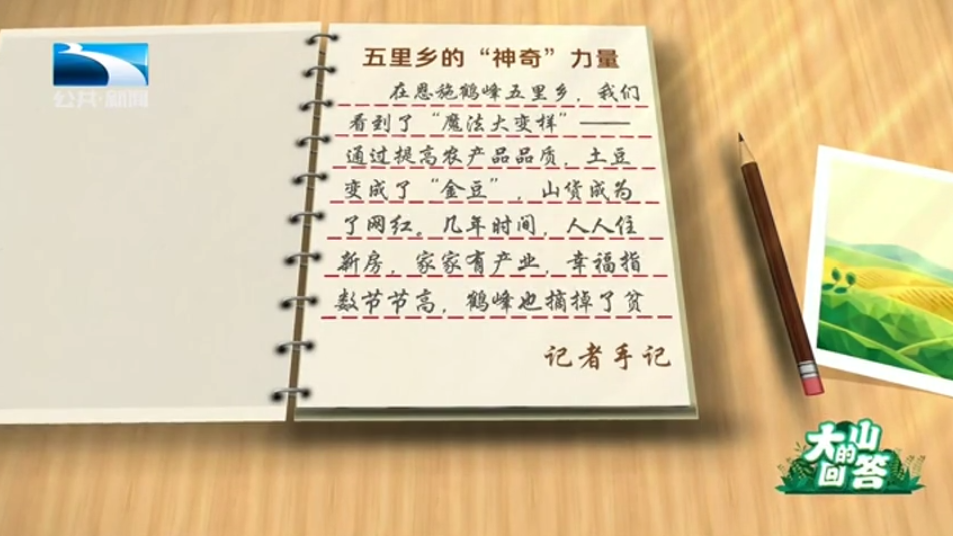 公共·新闻
五里乡的“神奇”力量
在恩施鹤峰五里乡，我们
看到了“魔法大变样”——
通过提高农产品品质，土豆
变成了“金豆”，山货成为
了网红。几年时间，人人住
新房，家家有产业，幸福指
数节节高，鹤峰也摘掉了贫
记者手记
大山的回答